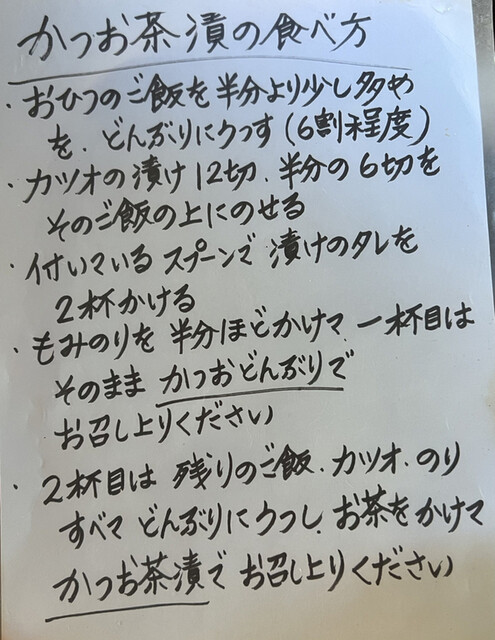 かつお茶漬の食べ方
・おひつのご飯を半分より少し多め
を、どんぶりにうつす(6割程度)
・カツオの漬け12切、半分の6切を
そのご飯の上にのせる
・付いているスプーンで漬けのタレを
2杯かける
・もみのりを半分ほどかけて一杯目は
そのままかつおどんぶりで
お召し上りください
・2杯目は残りのご飯、カツオ、のり
すべてどんぶりにうつし、お茶をかけて
かつお茶漬でお召し上りください